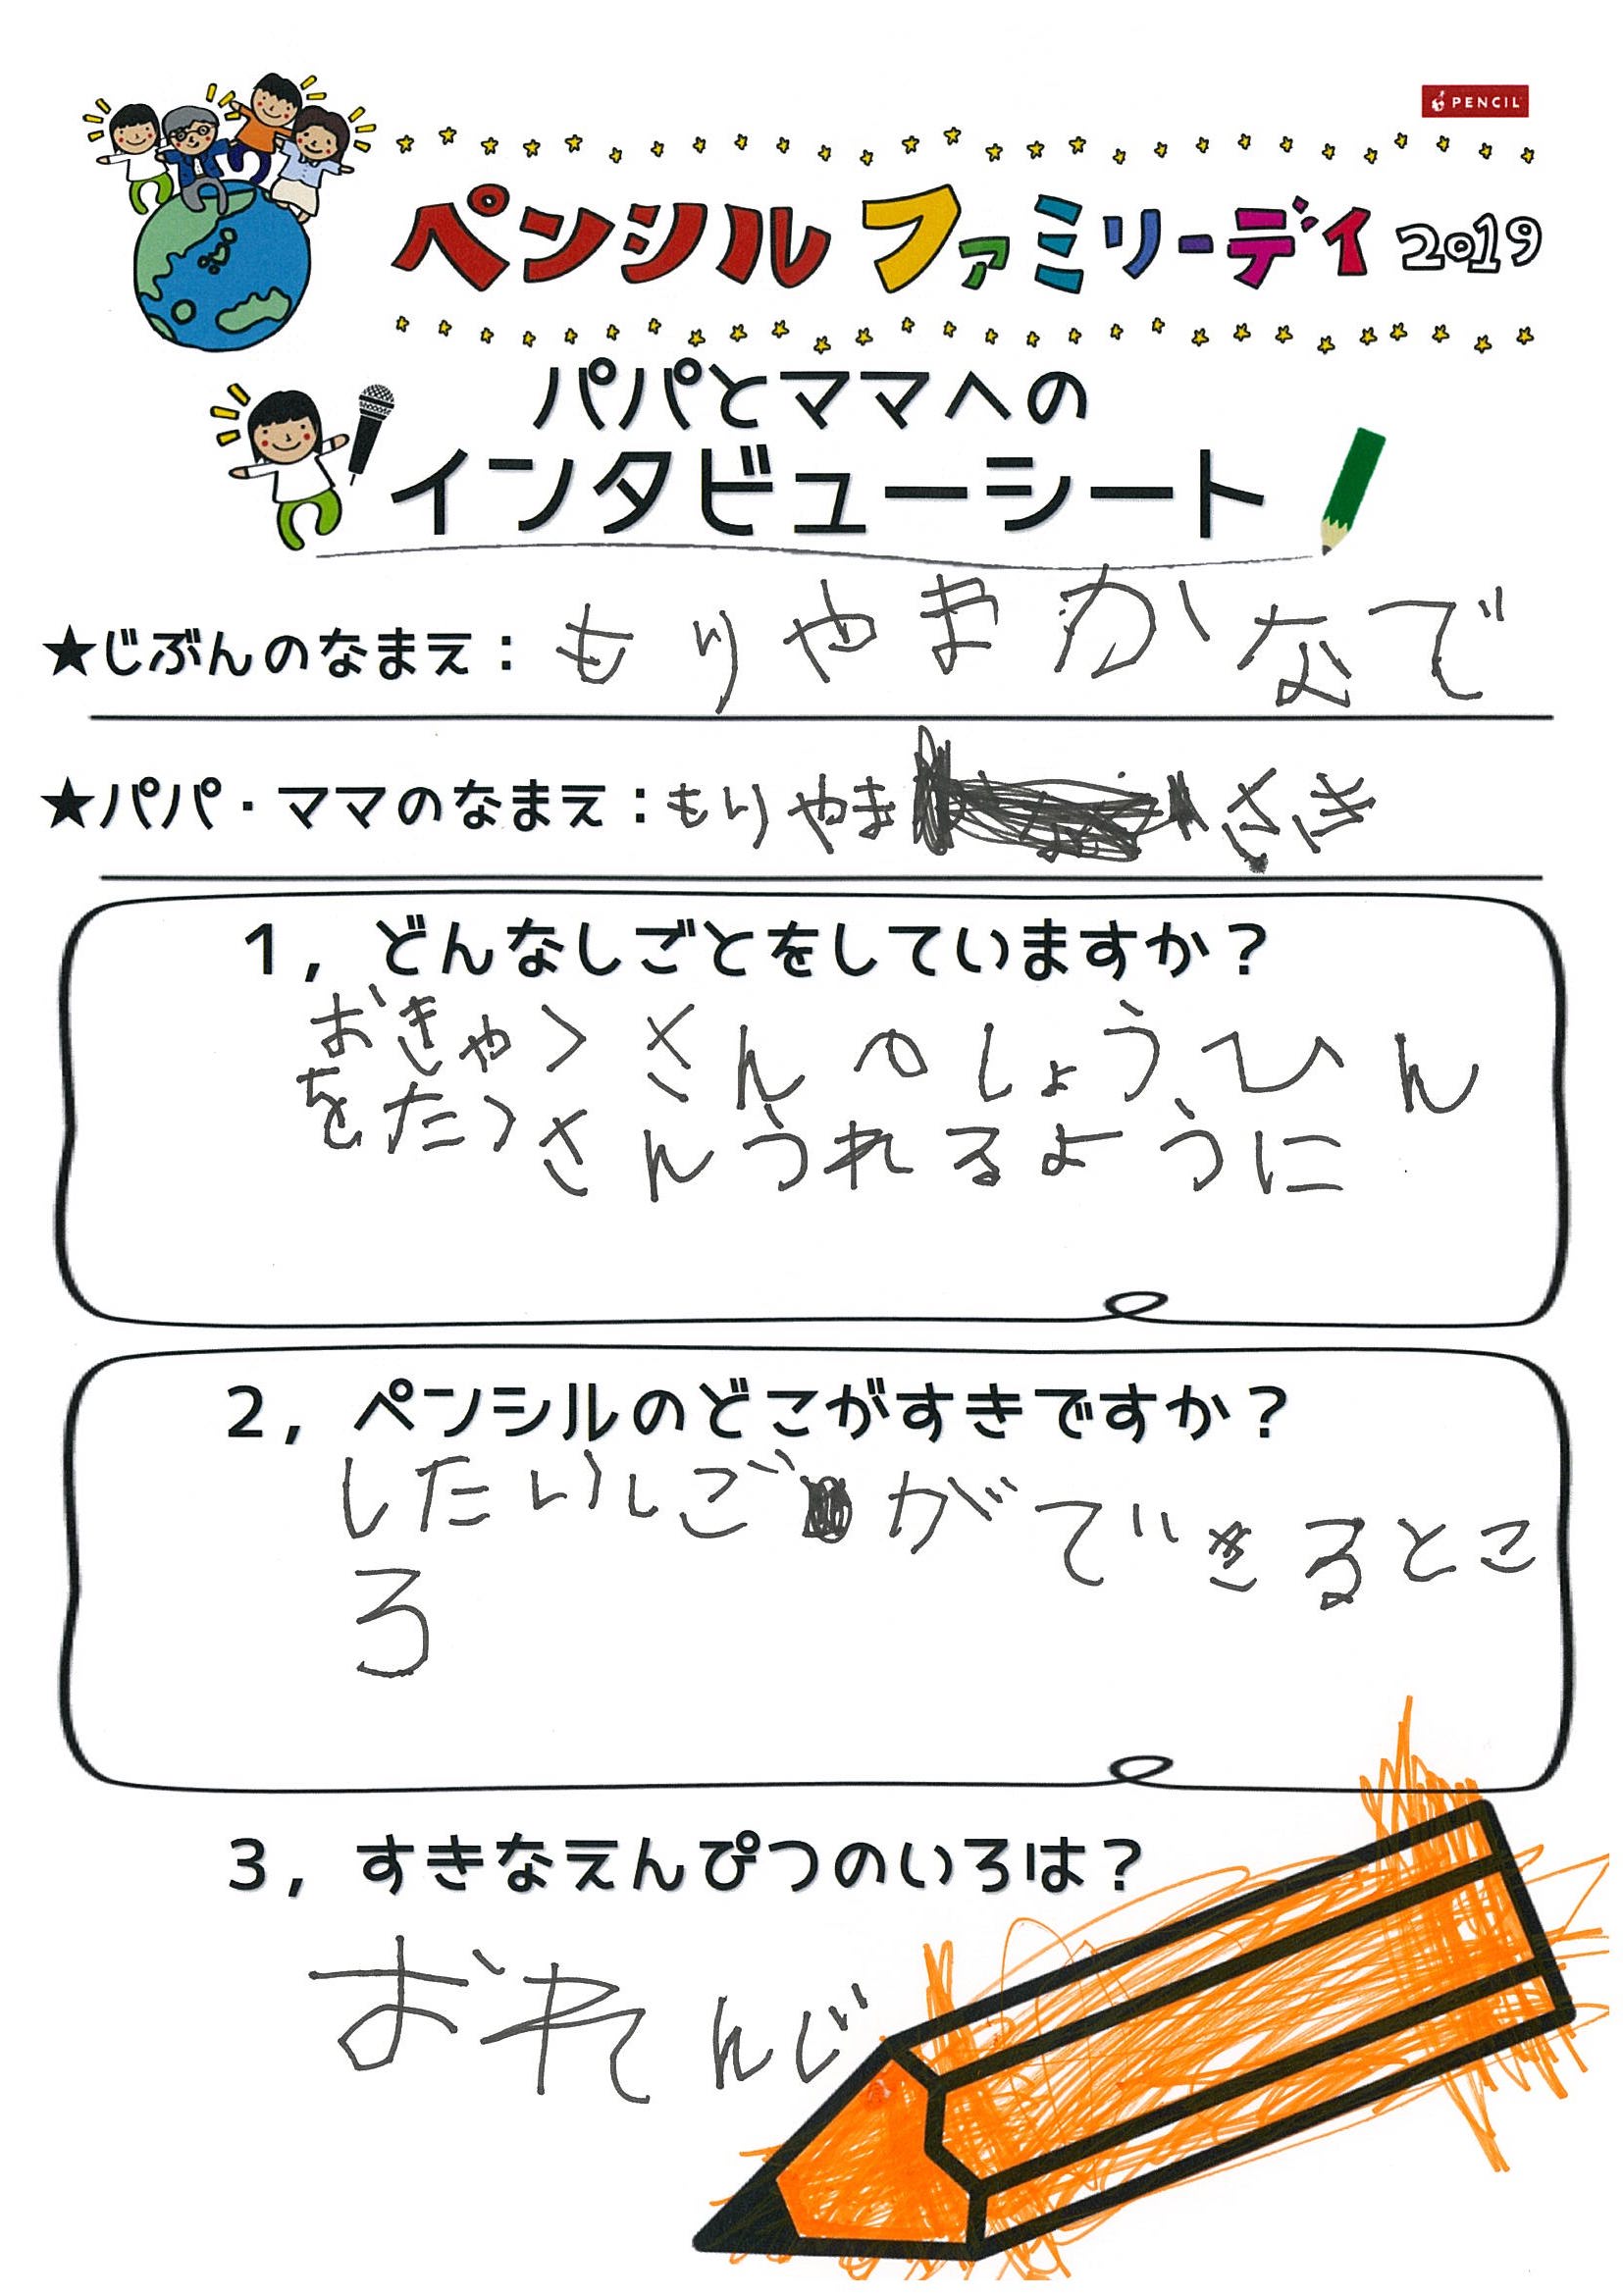 PENCIL
ペンシル ファミリーデイ 2019
パパとママへの
インタビューシート
★じぶんのなまえ：もりやまかなで
★パパ・ママのなまえ：もりやま さき
1，どんなしごとをしていますか？
おきゃくさんのしょうひん
をたくさんうれるように
2，ペンシルのどこがすきですか？
したいしごができるとこ
ろ
3，すきなえんぴつのいろは？
おれんじ